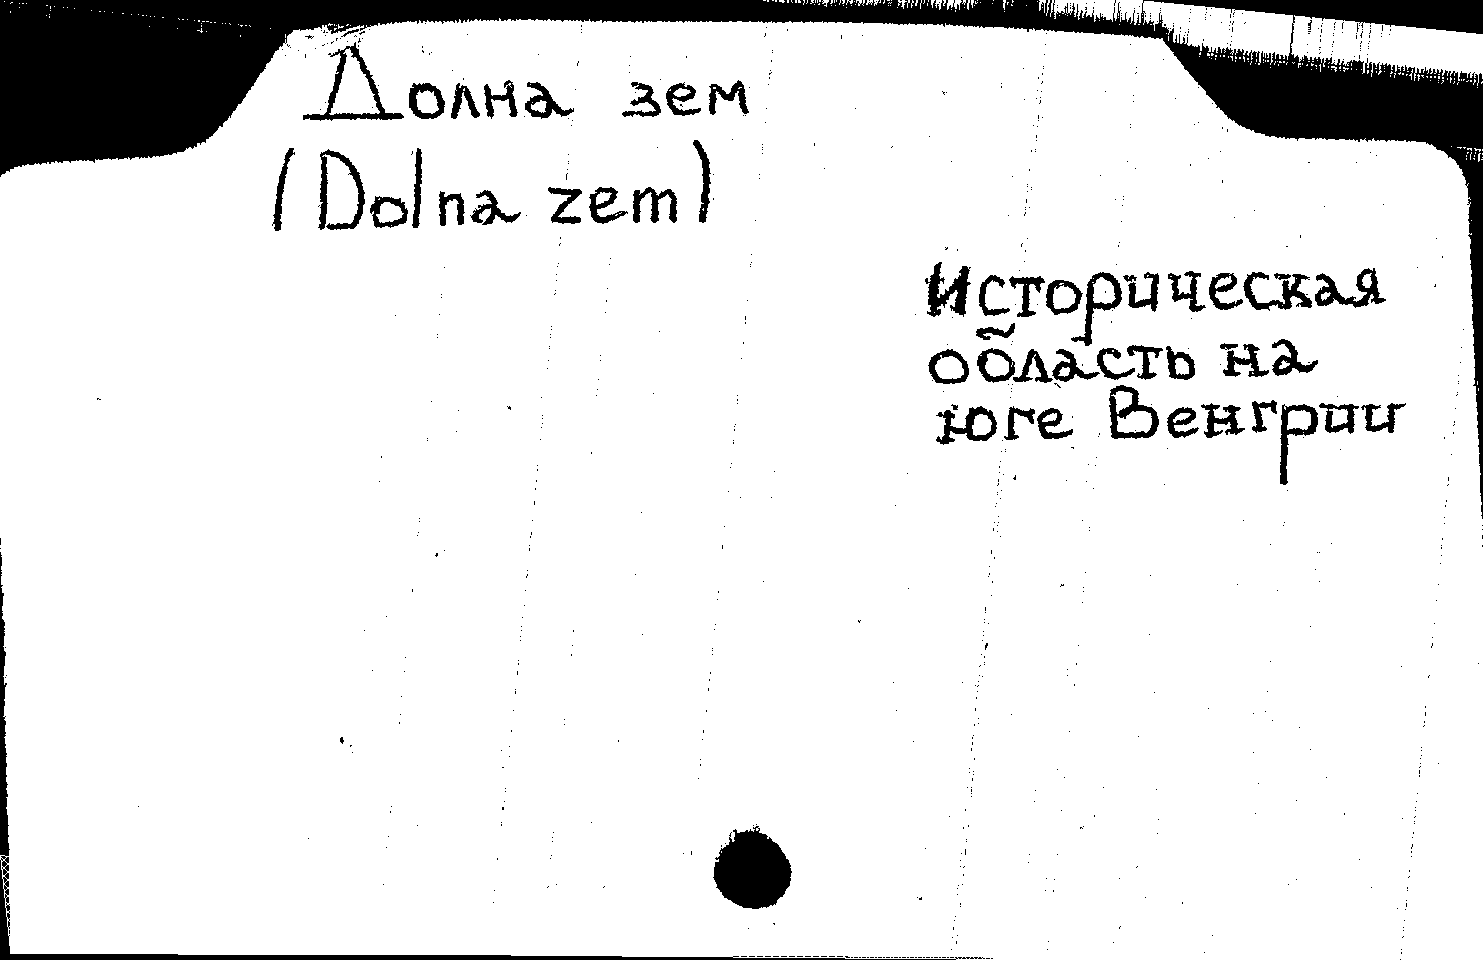 Долна зем
(Dolna zem)
Историческая
область на
юге Венгрии